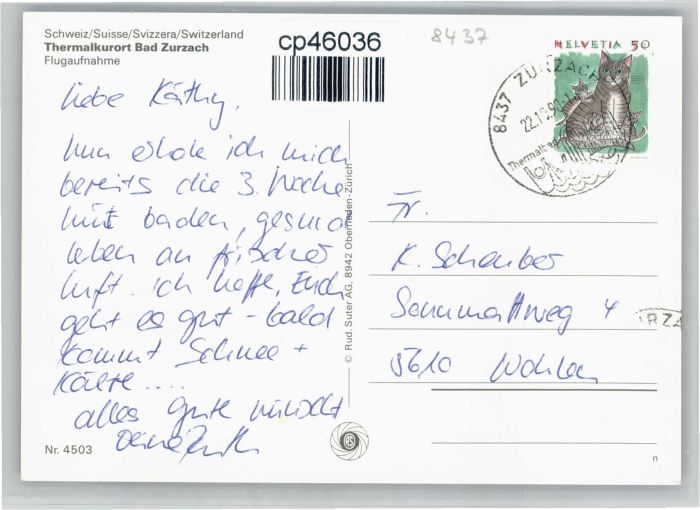 Schweiz/Suisse/Svizzera/Switzerland
Thermalkurort Bad Zurzach
Flugaufnahme
cp46036
8437
HELVETIA 50
8437 ZURZACH
22.10.90
Thermalbad
Liebe Käthy,
Nun erhole ich mich
bereits die 3. Woche
mit baden, gesund
leben an frischer
Luft. Ich hoffe, Euch
geht es gut - bald
kommt Schnee +
Kälte....
alles gute wünscht
Deine
© Rud. Suter AG, 8942 Oberrieden-Zürich
Fr.
K. Schenber
5610 Wohlen
RZA
Nr. 4503
n